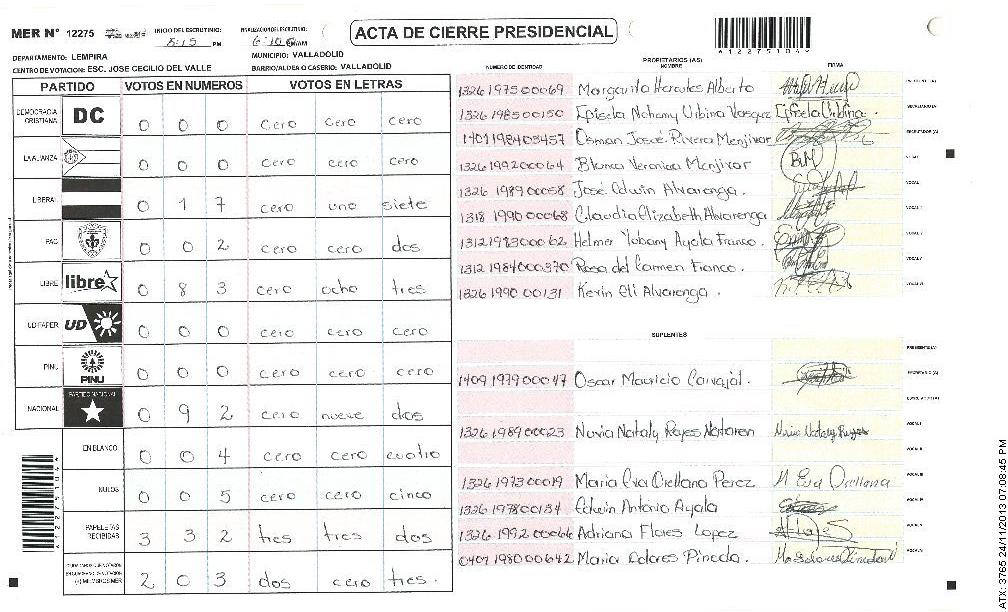 MER N° 12275
INICIO DEL ESCRUTINIO:
5:15 PM
6:10
ACTA DE CIERRE PRESIDENCIAL
4 1 2 2 7 5 1 0 4
DEPARTAMENTO: LEMPIRA
MUNICIPIO: VALLADOLID
CENTRO DE VOTACION: ESC. JOSE CECILIO DEL VALLE
BARRIO/ALDEA O CASERIO: VALLADOLID
PARTIDO VOTOS EN NUMEROS VOTOS EN LETRAS
DEMOCRACIA CRISTIANA DC 0 0 0 cero cero cero
LA ALIANZA 0 0 0 cero cero cero
LIBERAL 0 1 7 cero uno siete
PAC 0 0 2 cero cero dos
LIBRE libre 0 8 3 cero ocho tres
UD/FAPER UD 0 0 0 cero cero cero
PINU PINU 0 0 0 cero cero cero
NACIONAL PARTIDO NACIONAL 0 9 2 cero nueve dos
EN BLANCO 0 0 4 cero cero cuatro
NULOS 0 0 5 cero cero cinco
PAPELETAS RECIBIDAS 3 3 2 tres tres dos
2 0 3 dos cero tres.
PROPIETARIOS (AS)
NUMERO DE IDENTIDAD NOMBRE FIRMA
1326 1975 00069 Margarito Hercules Alberto
1326 1985 00150 Episela Nohemy Urbina Vasquez Episela Urbina
1401 1984 03457 Osman Josué Rivera Menjivar
1326 1992 00064 Blanca Veronica Menjivar BVM
1326 1989 00058 Jose Edwin Alvarenga.
1318 1990 00068 Claudia Elizabeth Alvarenga
1312 1983 00062 Helmer Yobany Ayala Franco.
1312 1984 000370 Rosa del Carmen Franco.
1326 1990 00131 Kevin Eli Alvarenga.
SUPLENTES
1409 1979 00047 Oscar Mauricio Carvajal.
1326 1989 00023 Nuvia Nataly Reyes Nataren Nuvia Nataly Reyes
1326 1973 00019 Maria Eva Orellana Perez M Eva Orellana
1326 1978 00134 Edwin Antonio Ayala
1326 1992 00066 Adriana Flores Lopez
0407 1980 00642 Maria Dolores Pineda. Ma Dolores Pineda
ATX: 3765 24/11/2013 07:08:45 PM